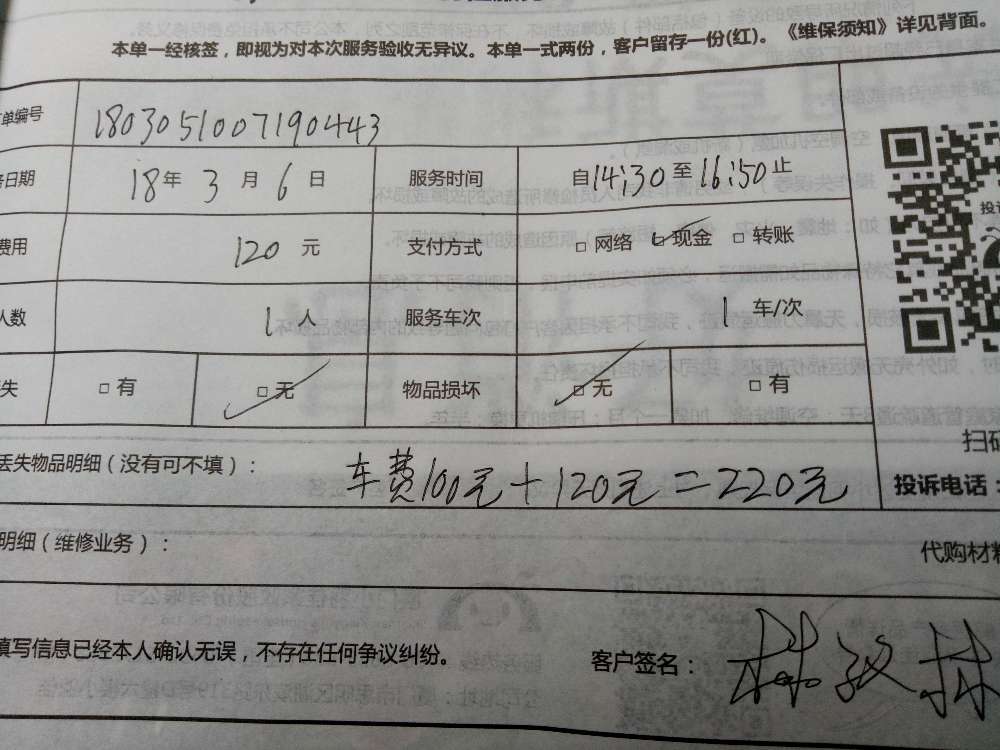 本单一经核签，即视为对本次服务验收无异议。本单一式两份，客户留存一份(红)。《维保须知》详见背面。
单编号 1803051007190443
日期 18年 3月 6日 服务时间 自14:30至16:50止
费用 120元 支付方式 □ 网络 ☑ 现金 □ 转账
人数 1人 服务车次 1 车/次
失 □ 有 ☑ 无 物品损坏 ☑ 无 □ 有
丢失物品明细（没有可不填）： 车费100元+120元=220元
扫码
投诉电话：
明细（维修业务）：
代购材料
填写信息已经本人确认无误，不存在任何争议纠纷。 客户签名：